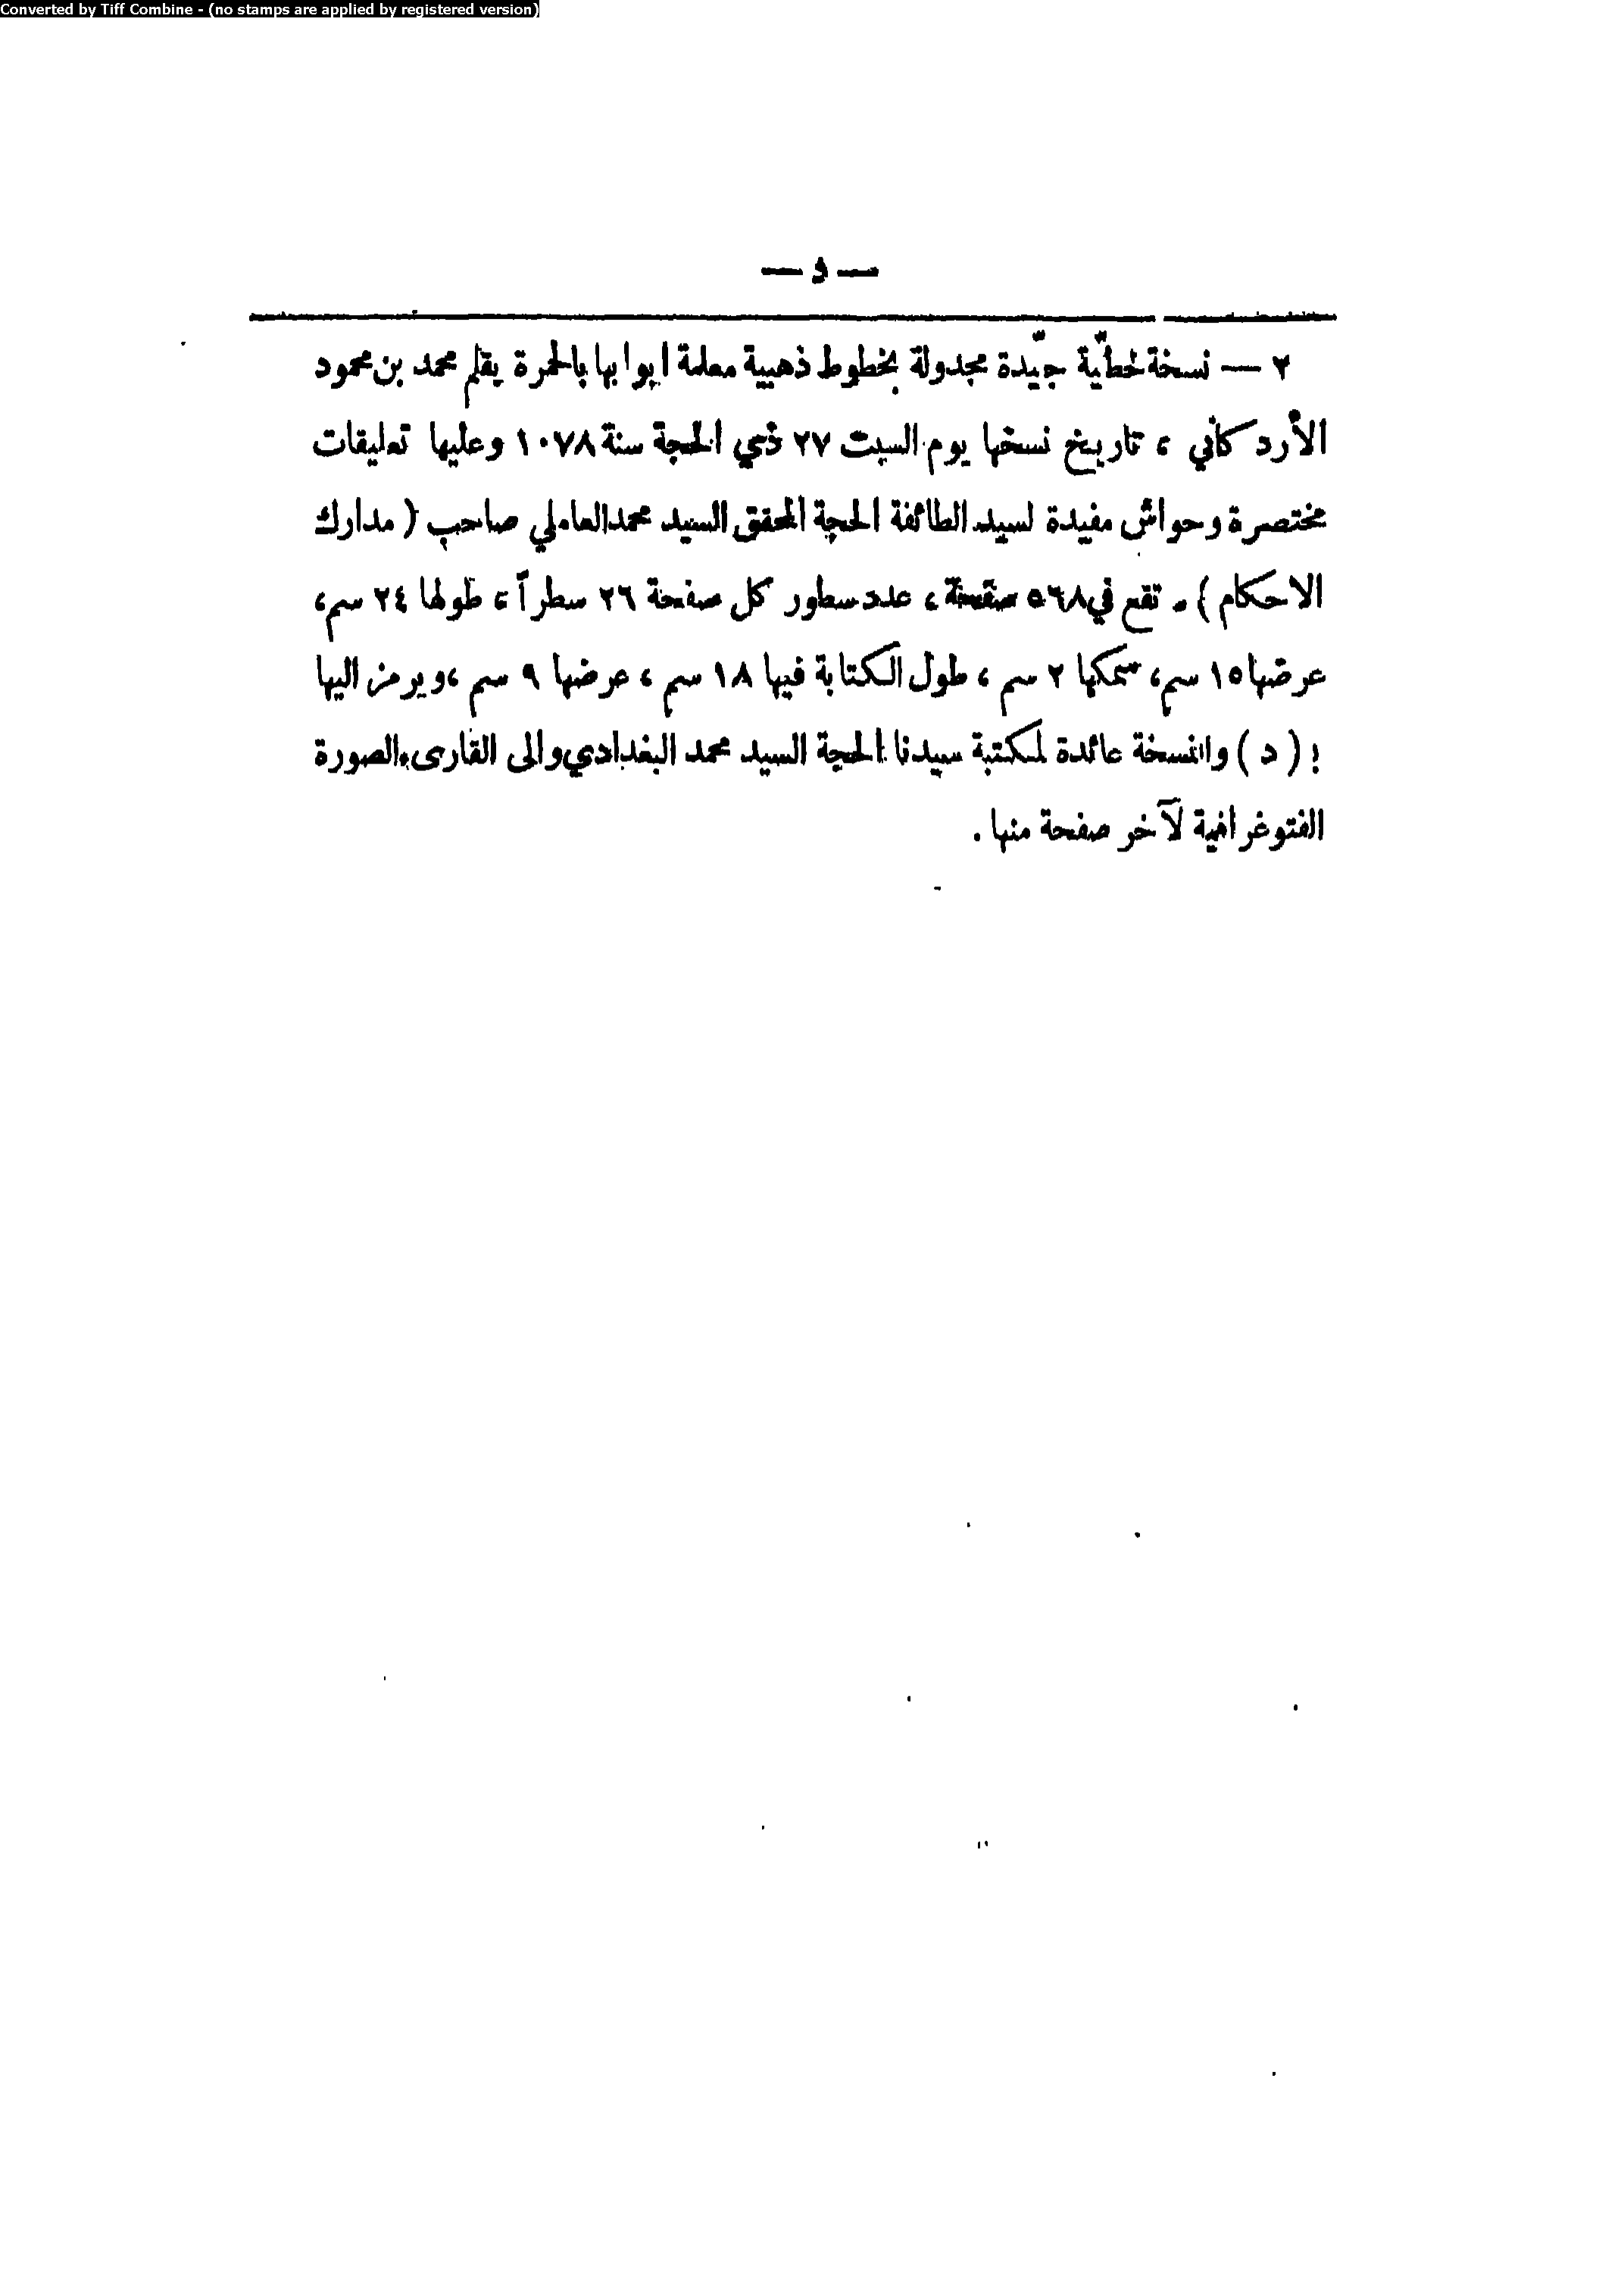 Converted by Tiff Combine - (no stamps are applied by registered version)
— و —
٢ — نسخة خطيّة جيّدة مجدولة بخطوط ذهبية معلمة ابوابها بالحمرة بقلم محمد بن محمود
الأردكاني ، تاريخ نسخها يوم السبت ٢٧ ذي الحجة سنة ١٠٧٨ وعليها تعليقات
مختصرة وحواش مفيدة لسيد الطائفة الحجة المحقق السيد محمد العاملي صاحب ( مدارك
الاحكام ) . تقع في ٥٦٨ صفحة ، عدد سطور كل صفحة ٢٦ سطراً ، طولها ٢٤ سم ،
عرضها ١٥ سم ، سمكها ٢ سم ، طول الكتابة فيها ١٨ سم ، عرضها ٩ سم ، ويرمز اليها
ب ( د ) والنسخة عائدة لمكتبة سيدنا الحجة السيد محمد البغدادي والى القارىء الصورة
الفتوغرافية لآخر صفحة منها .